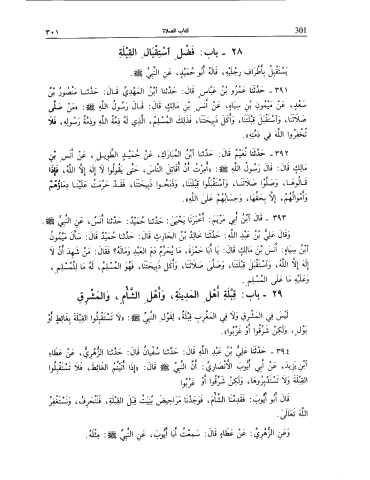 301 كتاب الصلاة ٣٠١
٢٨ - باب: فَضْلِ اسْتِقْبَالِ القِبْلَةِ
يَسْتَقْبِلُ بِأَطْرَافِ رِجْلَيْهِ، قَالَهُ أَبُو حُمَيْدٍ، عَنِ النَّبِيِّ ﷺ.
٣٩١ - حَدَّثَنَا عَمْرُو بْنُ عَبَّاسٍ قَالَ: حَدَّثَنَا ابْنُ المَهْدِيِّ قَالَ: حَدَّثَنَا مَنْصُورُ بْنُ
سَعْدٍ، عَنْ مَيْمُونِ بْنِ سِيَاهٍ، عَنْ أَنَسِ بْنِ مَالِكٍ قَالَ: قَالَ رَسُولُ اللَّهِ ﷺ: «مَنْ صَلَّى
صَلَاتَنَا، وَاسْتَقْبَلَ قِبْلَتَنَا، وَأَكَلَ ذَبِيحَتَنَا، فَذَلِكَ المُسْلِمُ، الَّذِي لَهُ ذِمَّةُ اللَّهِ وَذِمَّةُ رَسُولِهِ، فَلَا
تُخْفِرُوا اللَّهَ فِي ذِمَّتِهِ».
٣٩٢ - حَدَّثَنَا نُعَيْمٌ قَالَ: حَدَّثَنَا ابْنُ المُبَارَكِ، عَنْ حُمَيْدٍ الطَّوِيلِ، عَنْ أَنَسِ بْنِ
مَالِكٍ قَالَ: قَالَ رَسُولُ اللَّهِ ﷺ: «أُمِرْتُ أَنْ أُقَاتِلَ النَّاسَ، حَتَّى يَقُولُوا لَا إِلَهَ إِلَّا اللَّهُ، فَإِذَا
قَالُوهَا، وَصَلَّوْا صَلَاتَنَا، وَاسْتَقْبَلُوا قِبْلَتَنَا، وَذَبَحُوا ذَبِيحَتَنَا، فَقَدْ حَرُمَتْ عَلَيْنَا دِمَاؤُهُمْ
وَأَمْوَالُهُمْ، إِلَّا بِحَقِّهَا، وَحِسَابُهُمْ عَلَى اللَّهِ».
٣٩٣ - قَالَ ابْنُ أَبِي مَرْيَمَ: أَخْبَرَنَا يَحْيَى: حَدَّثَنَا حُمَيْدٌ: حَدَّثَنَا أَنَسٌ، عَنِ النَّبِيِّ ﷺ.
وَقَالَ عَلِيُّ بْنُ عَبْدِ اللَّهِ: حَدَّثَنَا خَالِدُ بْنُ الحَارِثِ قَالَ: حَدَّثَنَا حُمَيْدٌ قَالَ: سَأَلَ مَيْمُونُ
ابْنُ سِيَاهٍ: أَنَسَ بْنَ مَالِكٍ قَالَ: يَا أَبَا حَمْزَةَ، مَا يُحَرِّمُ دَمَ العَبْدِ وَمَالَهُ؟ فَقَالَ: مَنْ شَهِدَ أَنْ لَا
إِلَهَ إِلَّا اللَّهُ، وَاسْتَقْبَلَ قِبْلَتَنَا، وَصَلَّى صَلَاتَنَا، وَأَكَلَ ذَبِيحَتَنَا، فَهُوَ المُسْلِمُ، لَهُ مَا لِلْمُسْلِمِ،
وَعَلَيْهِ مَا عَلَى المُسْلِمِ.
٢٩ - باب: قِبْلَةِ أَهْلِ المَدِينَةِ، وَأَهْلِ الشَّأْمِ، وَالمَشْرِقِ
لَيْسَ فِي المَشْرِقِ وَلَا فِي المَغْرِبِ قِبْلَةٌ، لِقَوْلِ النَّبِيِّ ﷺ: «لَا تَسْتَقْبِلُوا القِبْلَةَ بِغَائِطٍ أَوْ
بَوْلٍ، وَلَكِنْ شَرِّقُوا أَوْ غَرِّبُوا».
٣٩٤ - حَدَّثَنَا عَلِيُّ بْنُ عَبْدِ اللَّهِ قَالَ: حَدَّثَنَا سُفْيَانُ قَالَ: حَدَّثَنَا الزُّهْرِيُّ، عَنْ عَطَاءِ
ابْنِ يَزِيدَ، عَنْ أَبِي أَيُّوبَ الأَنْصَارِيِّ: أَنَّ النَّبِيَّ ﷺ قَالَ: «إِذَا أَتَيْتُمُ الغَائِطَ، فَلَا تَسْتَقْبِلُوا
القِبْلَةَ وَلَا تَسْتَدْبِرُوهَا، وَلَكِنْ شَرِّقُوا أَوْ غَرِّبُوا
قَالَ أَبُو أَيُّوبَ: فَقَدِمْنَا الشَّأْمَ، فَوَجَدْنَا مَرَاحِيضَ بُنِيَتْ قِبَلَ القِبْلَةِ، فَنَنْحَرِفُ، وَنَسْتَغْفِرُ
اللَّهَ تَعَالَى.
وَعَنِ الزُّهْرِيِّ: عَنْ عَطَاءٍ قَالَ: سَمِعْتُ أَبَا أَيُّوبَ، عَنِ النَّبِيِّ ﷺ: مِثْلَهُ.